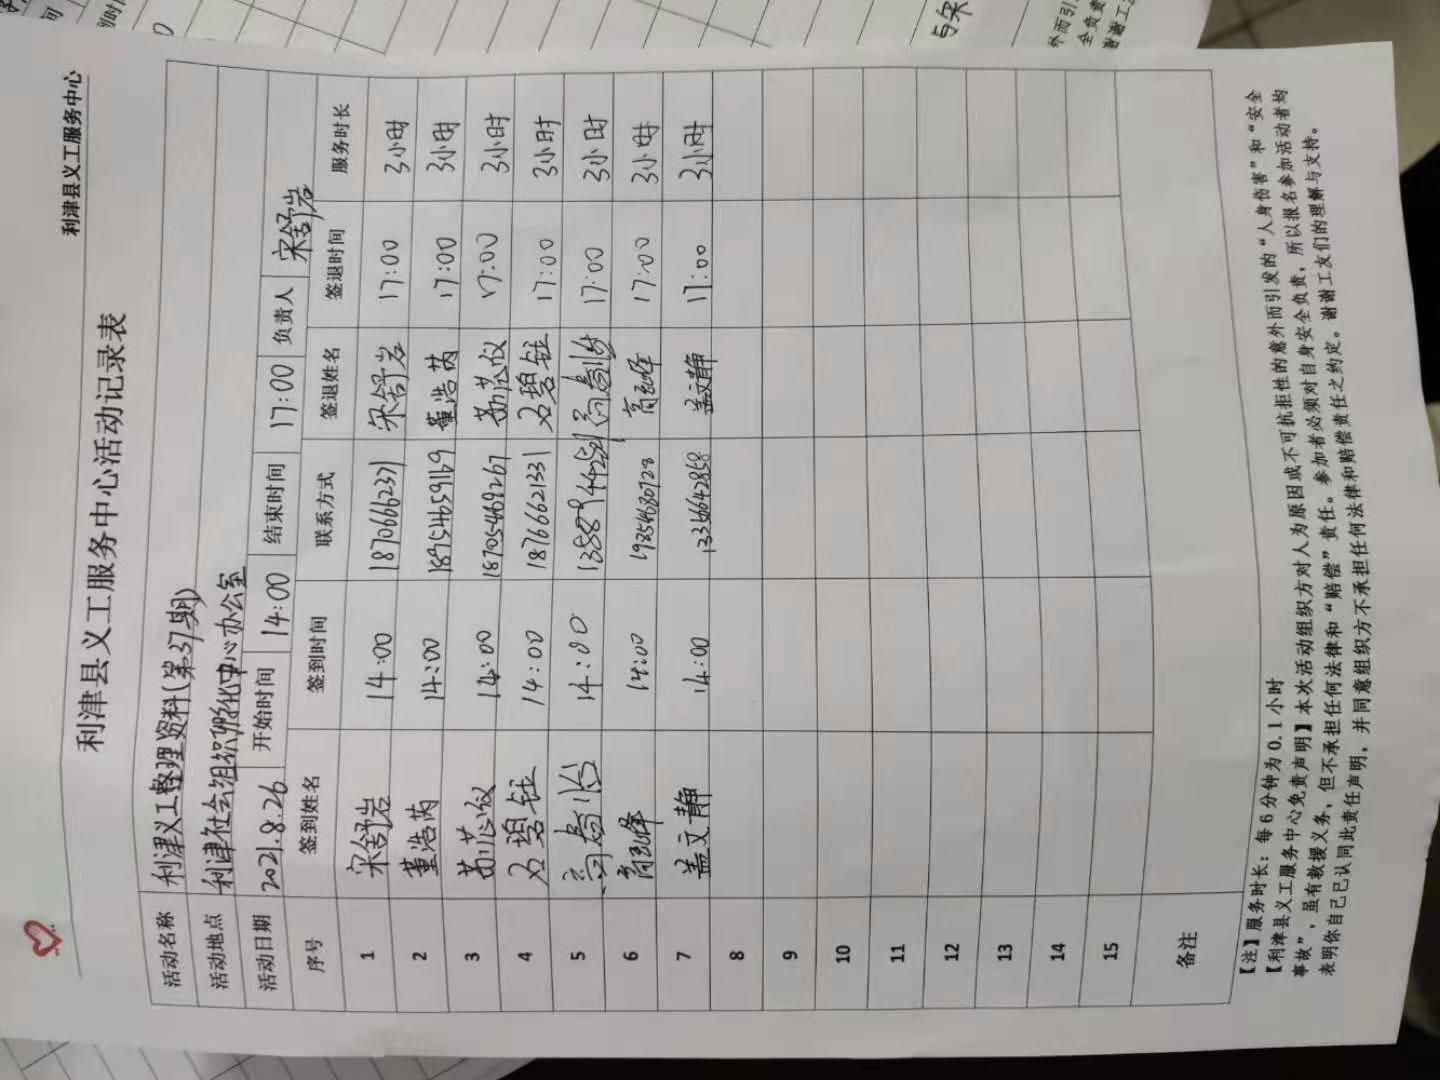 利津县义工服务中心
利津县义工服务中心活动记录表
活动名称 利津义工整理资料(第37期)
活动地点 利津社会组织孵化中心办公室
活动日期 2021.8.26 开始时间 14:00 结束时间 17:00 负责人 宋舒岩
序号 签到姓名 签到时间 联系方式 签退姓名 签退时间 服务时长
1 宋舒岩 14:00 18706662371 宋舒岩 17:00 3小时
2 董浩芮 14:00 18954659169 董浩芮 17:00 3小时
3 14:00 18705469267 17:00 3小时
4 石碧钰 14:00 18766621331 石碧钰 17:00 3小时
5 14:00 17:00 3小时
6 14:00 17:00 3小时
7 盖文静 14:00 盖文静 17:00 3小时
8
9
10
11
12
13
14
15
备注
【注】服务时长：每6分钟为0.1小时
【利津县义工服务中心免责声明】本次活动组织方对人为原因或不可抗拒性的意外而引发的“人身伤害”和“安全
事故”，虽有救援义务，但不承担任何法律和“赔偿”责任。参加者必须对自身安全负责，所以报名参加活动者均
表明你自己已认同此责任声明，并同意组织方不承担任何法律和赔偿责任之约定。谢谢工友们的理解与支持。